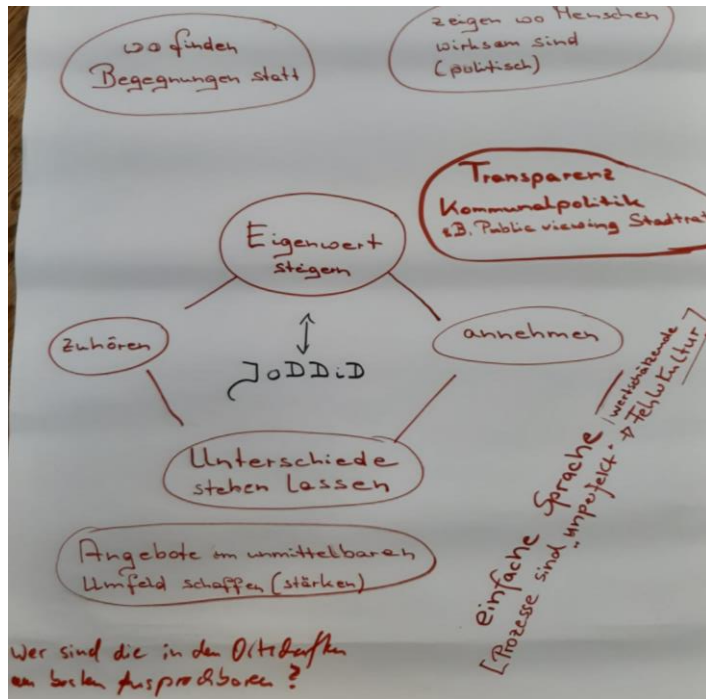 wo finden
Begegnungen statt
zeigen wo Menschen
wirksam sind
(politisch)
Transparenz
Kommunalpolitik
z.B. Public viewing Stadtrat
Eigenwert
steigern
zuhören
annehmen
JoDDiD
Unterschiede
stehen lassen
Angebote im unmittelbaren
Umfeld schaffen (stärken)
einfache Sprache
[Prozesse sind "unperfekt"
wertschätzende
Fehlerkultur]
Wer sind die in den Ortschaften
am besten Ansprechbaren?